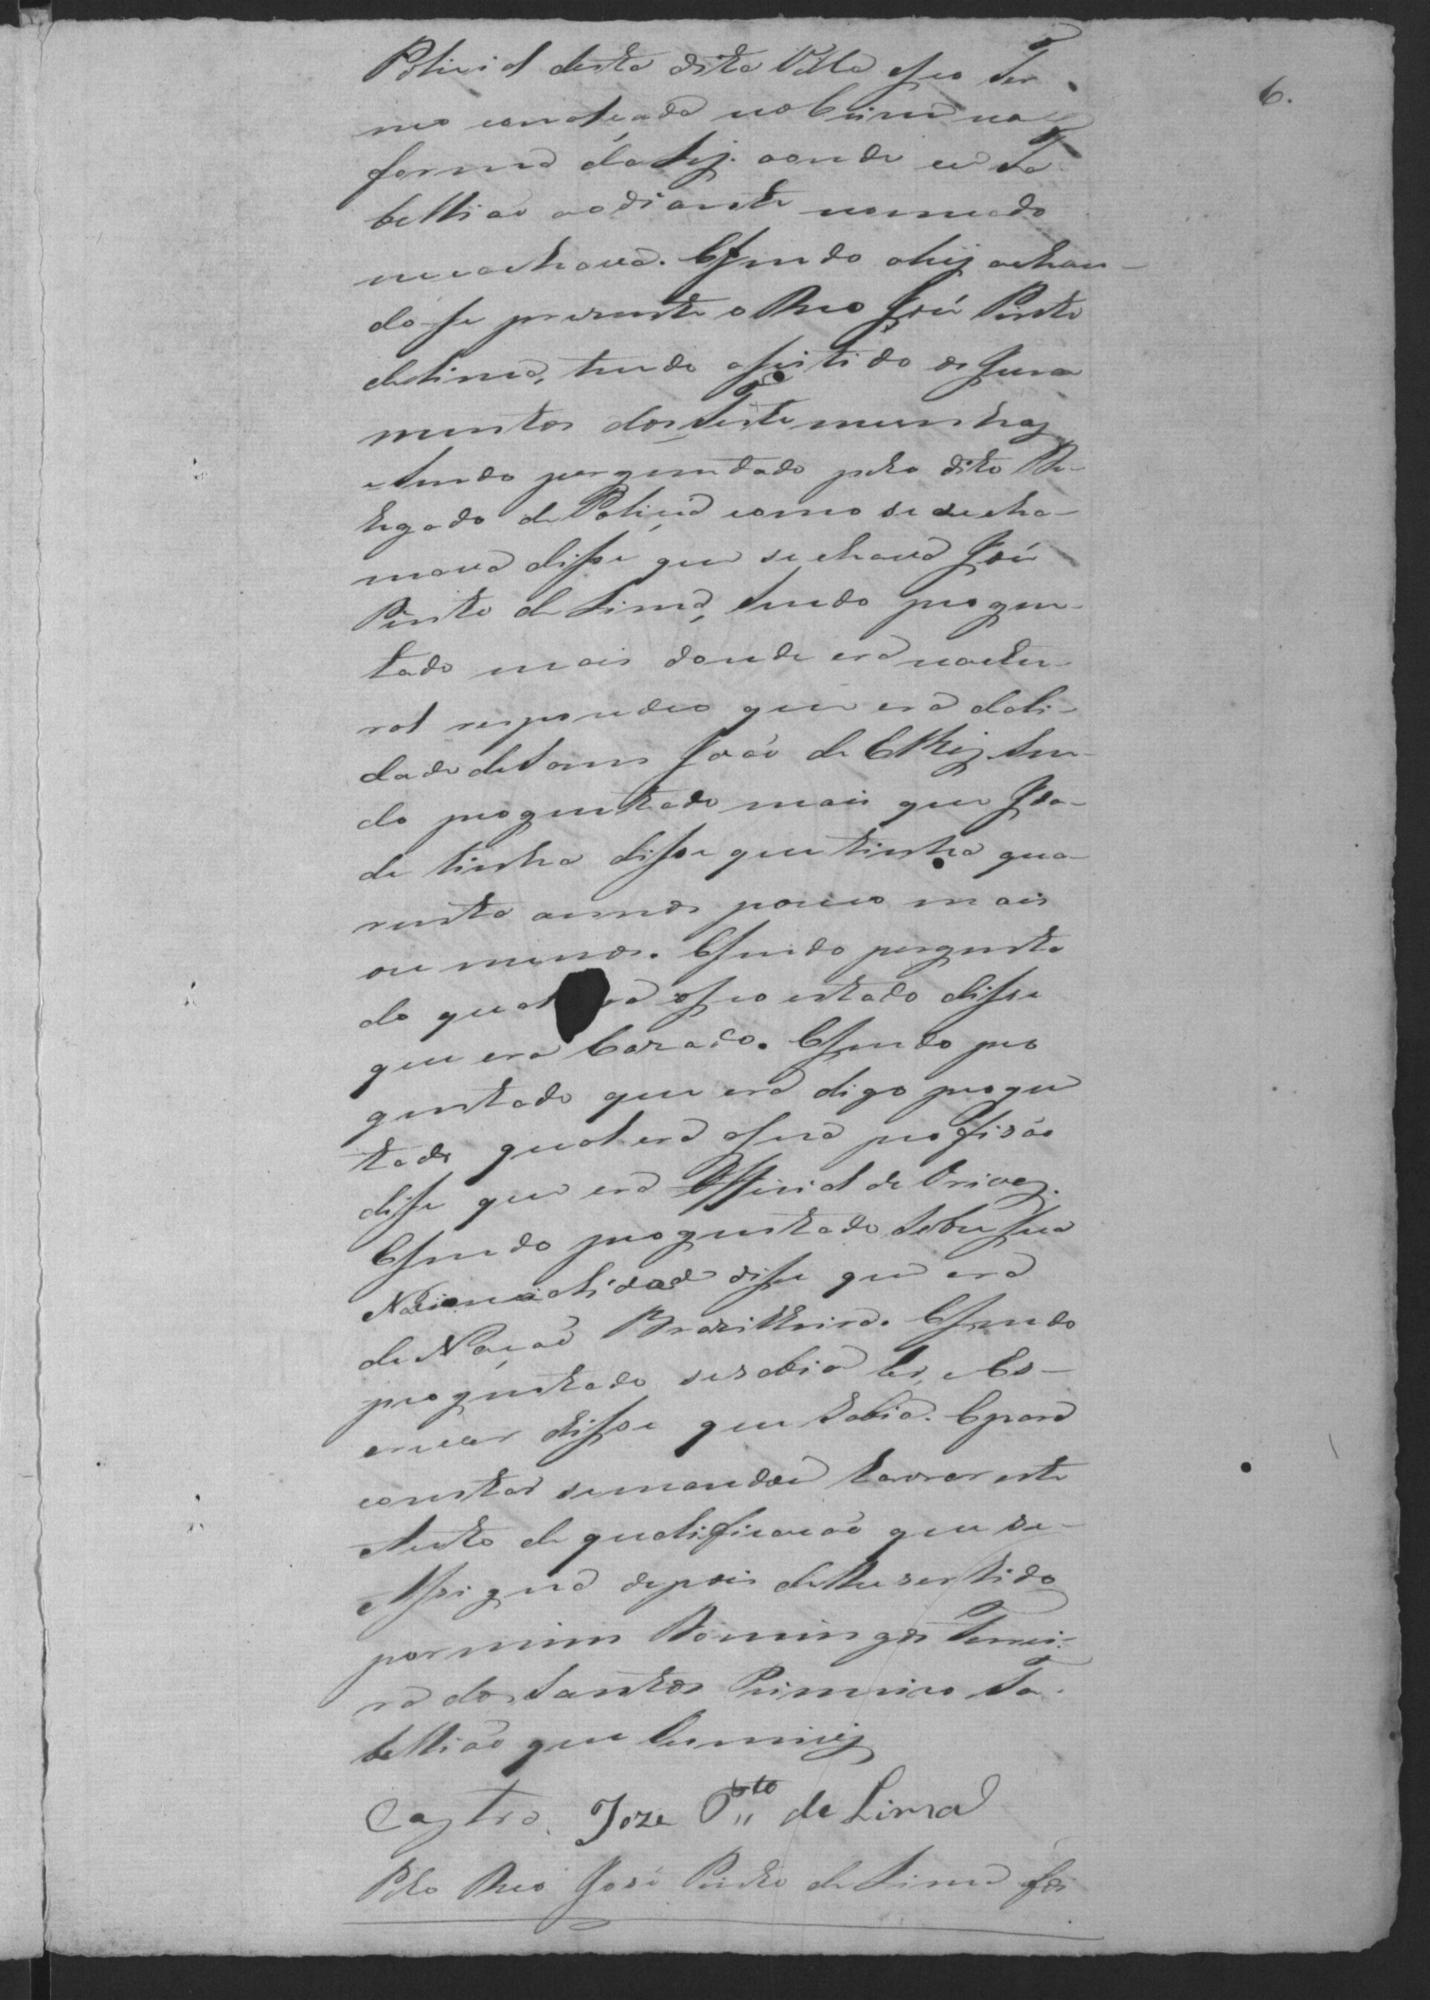 6.
Policial desta dita Villa e seo Ter-
mo commigo no Crime na
forma da Ley. aonde eu Ta-
bellião aodiante nomiado
meachava. E sendo ahij achan-
do-se prezente o Reo José Pinto
deLima, tendo asistido os Jura
mentos das Testemunhas
e sendo perguntado pelo dito De-
legado de Policia como se se cha-
mava disse que se chava José
Pinto de Lima, sendo pregun-
tado mais donde era natu-
ral respondeo que era da Ci-
dade de Sam João de El Rej. Sen-
do preguntado mais que Ida-
de tinha disse que tinha qua-
renta annos pouco mais
ou menos. E sendo pergunta
do qual era o seo estado disse
que era Cazado. E sendo pre
guntado que era digo pregun
tado qual era a sua profisão
disse que era Official de Orives.
E sendo preguntado sobre sua
Nacionalidade disse que era
de Nação Brazilleira. E sendo
preguntado se sabia ler, e Es-
crever disse que sabia. E para
constar se mandou lavrar este
Auto de qualificação que se
Assigna depois de lhe ser lido
por mim Domingos Ferrei-
ra dos Santos Primeiro Ta-
bellião que Escrevij
Castro. Joze P.to de Lima
Pelo Reo José Pinto de Lima foi